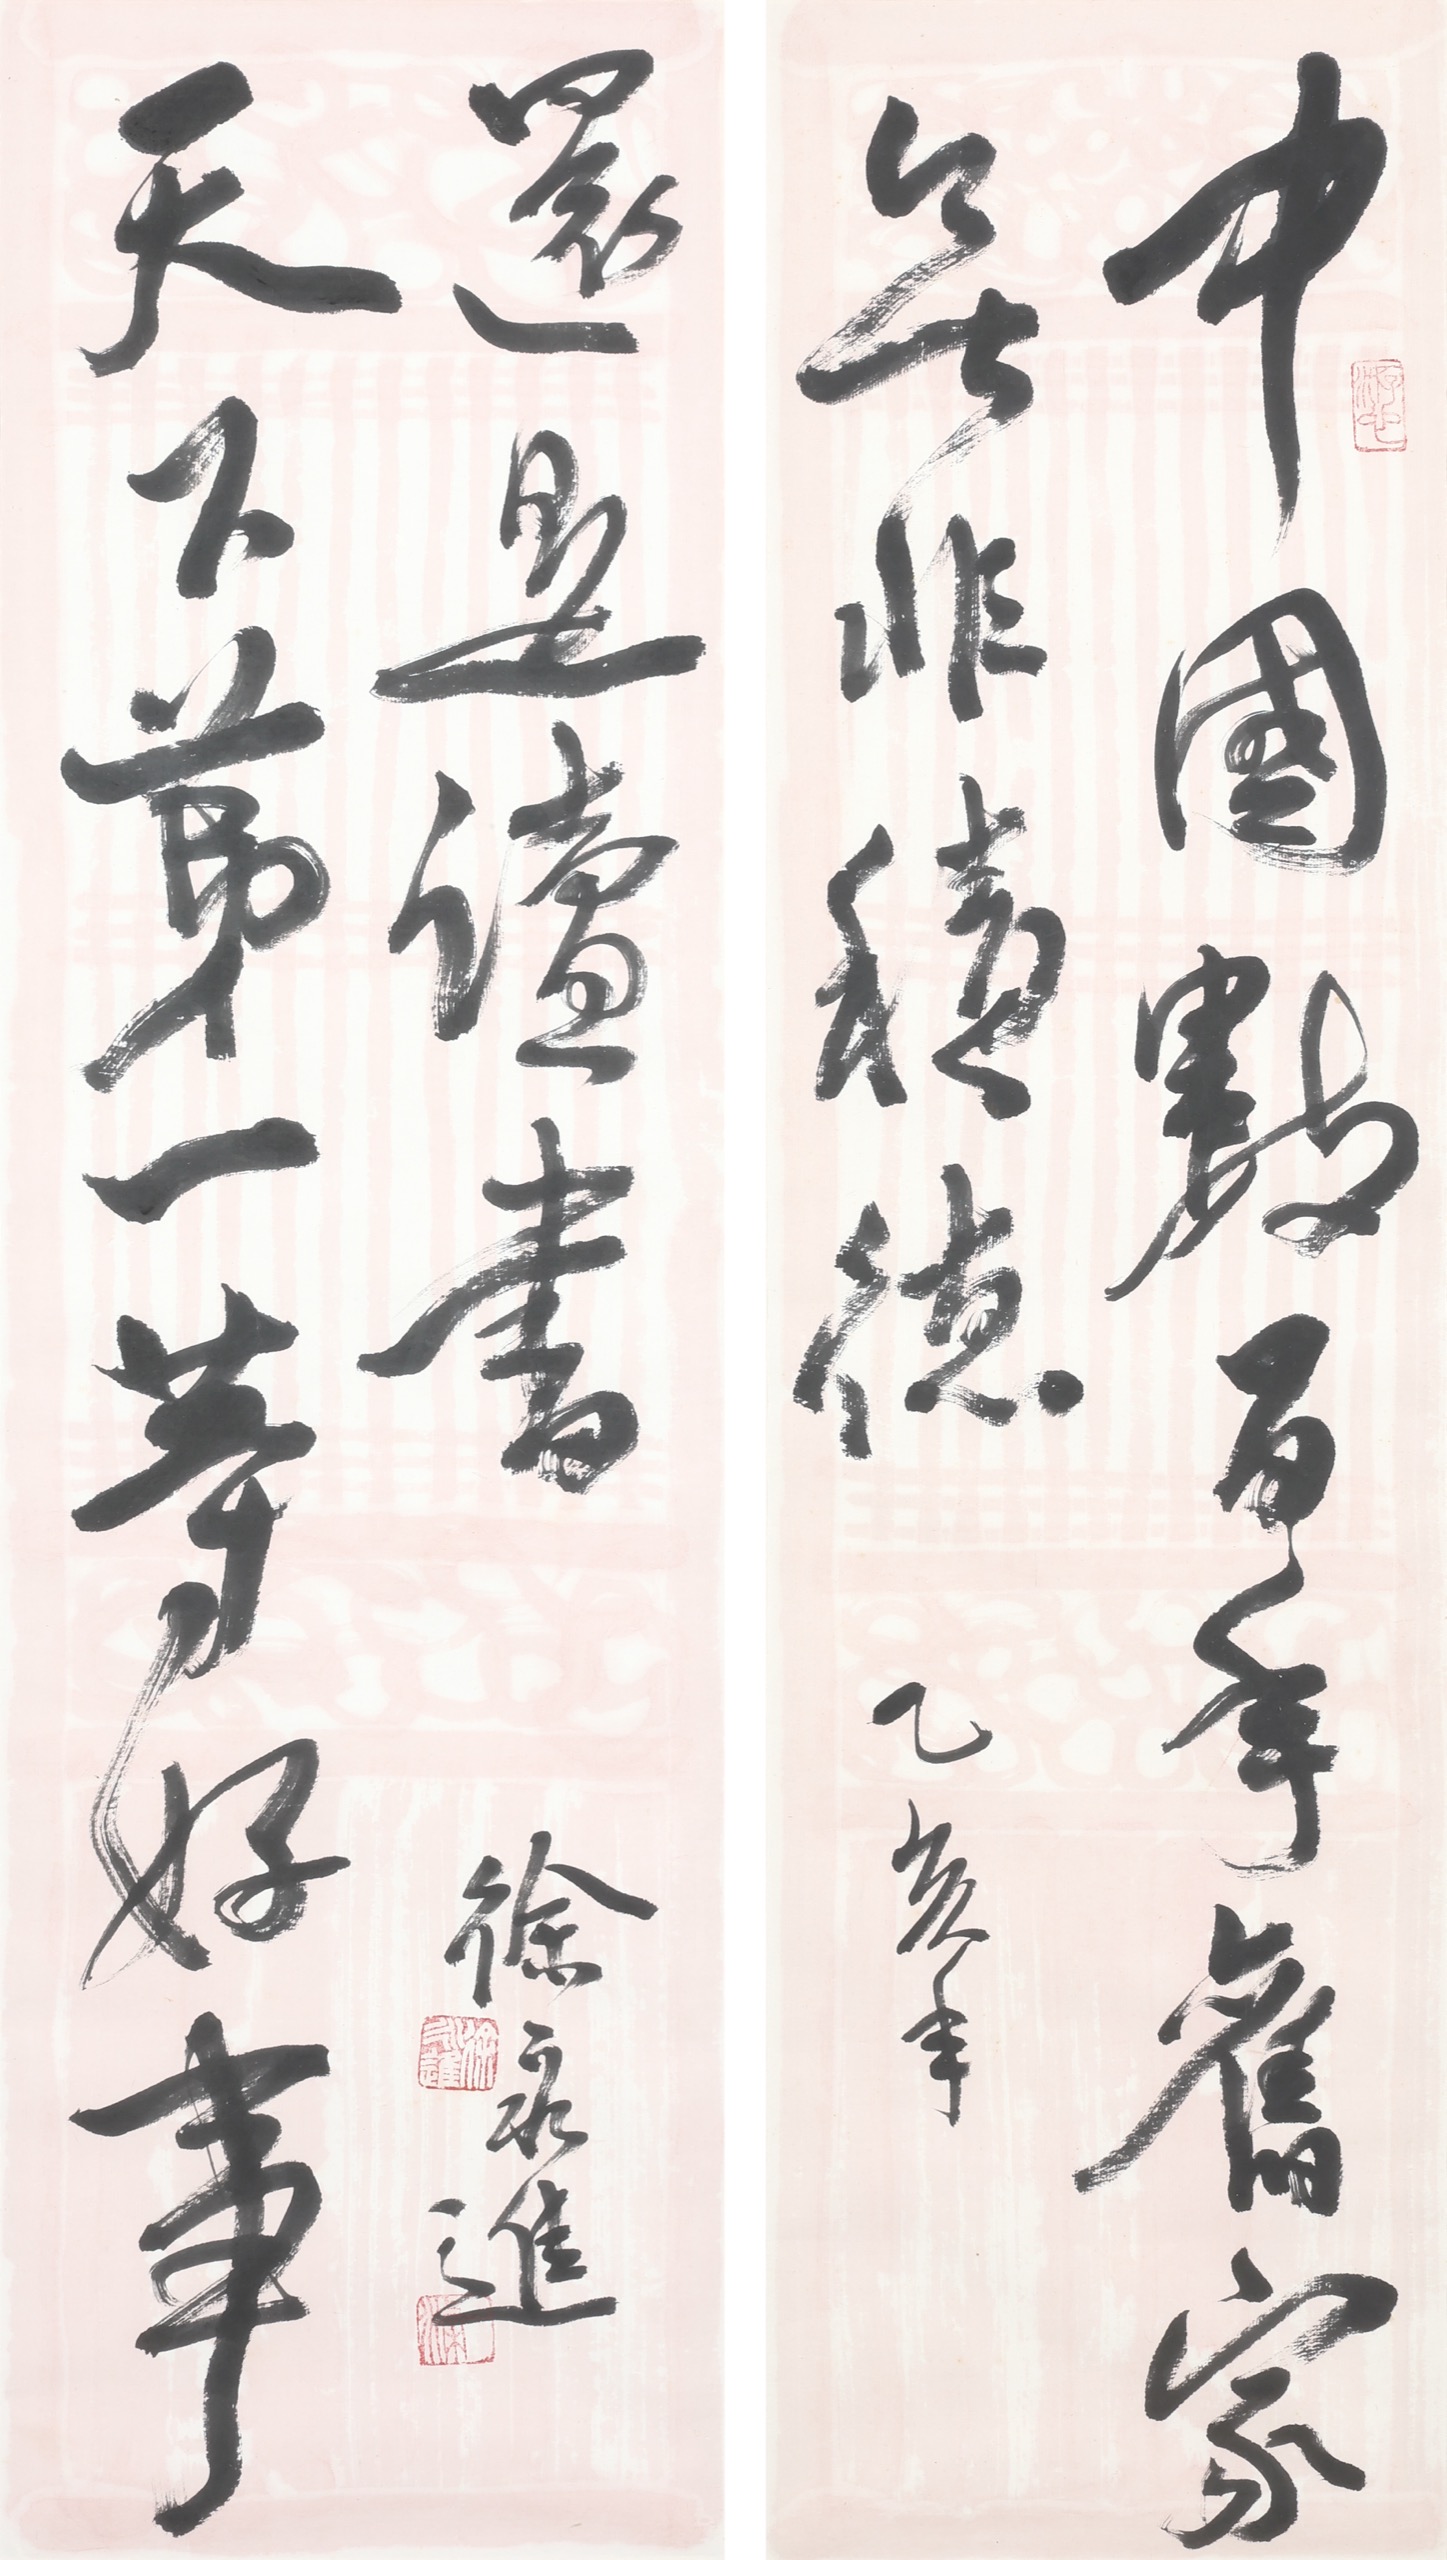 中國數百年舊家
無非積德
乙亥年
天下第一等好事
還是讀書
徐永進
徐永進